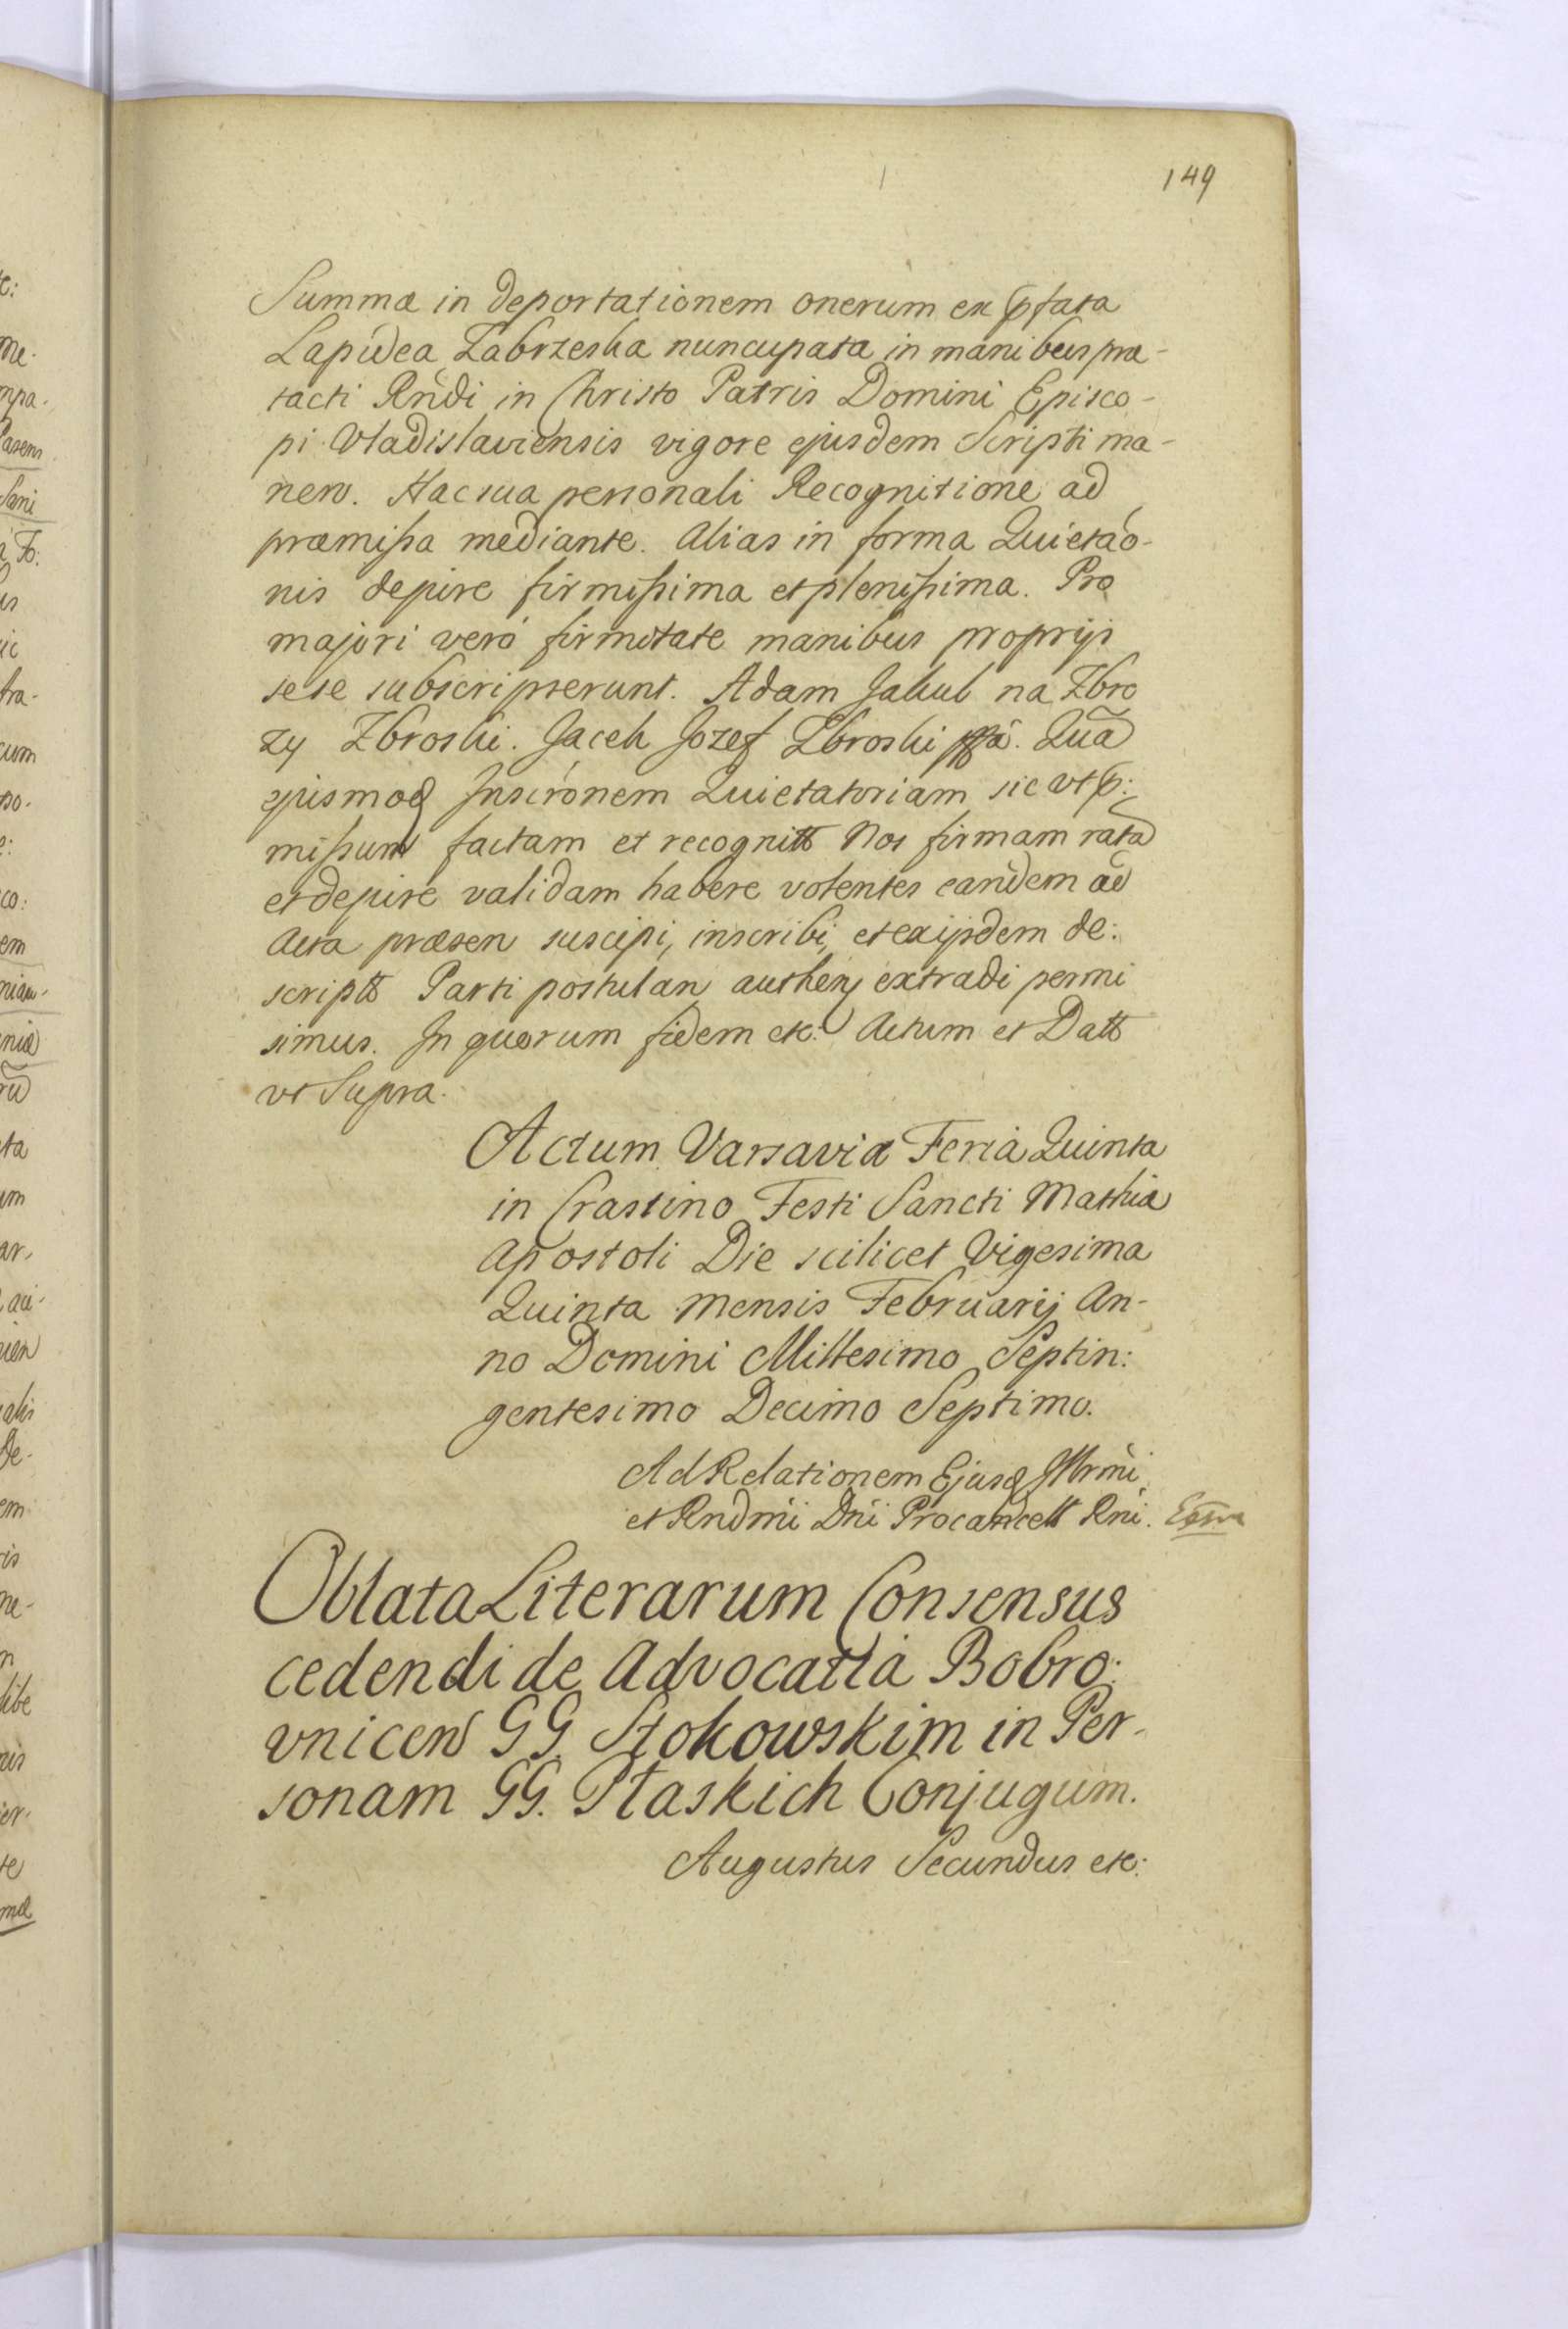 149
Summæ in deportationem onerum ex pfata
Lapidea Zabrzeska nuncupata in manibus præ-
tacti Rndi in Christo Patris Domini Episco-
pi Vladislaviensis vigore ejusdem Scripti ma-
nen. Hac sua personali Recognitione ad
præmissa mediante. Alias in forma Quietaõ-
nis de jure firmissima et plenissima. Pro
majori veró firmitate manibus proprijs
sese subscripserunt. Adam Jakub na Zbro
zy Zbroski. Jacek Jozef Zbroski. Quã
ejusmod Inscrónem Quietatoriam sic vt p:
missum factam et recognitt Nos firmam ratã
et de jure validam habere volentes eandem ad
Acta præsen suscipi, inscribi, et ex ijsdem de:
scriptt Parti postulan authen extradi permi
simus. In quorum fidem etc: Actum et Datt
vt Supra.
Actum Varsaviæ Feria Quinta
in Crastino Festi Sancti Mathiæ
Apostoli Die scilicet Vigesima
Quinta Mensis Februarij An-
no Domini Millesimo Septin:
gentesimo Decimo Septimo.
Ad Relationem Ejusd Illrmi
et Rndmi Dni Procancell Rni.
Oblata Literarum Consensus
cedendi de Advocatia Bobro:
vnicen GG. Stokowskim in Per-
sonam GG. Ptaskich Conjugum.
Augustus Secundus etc: